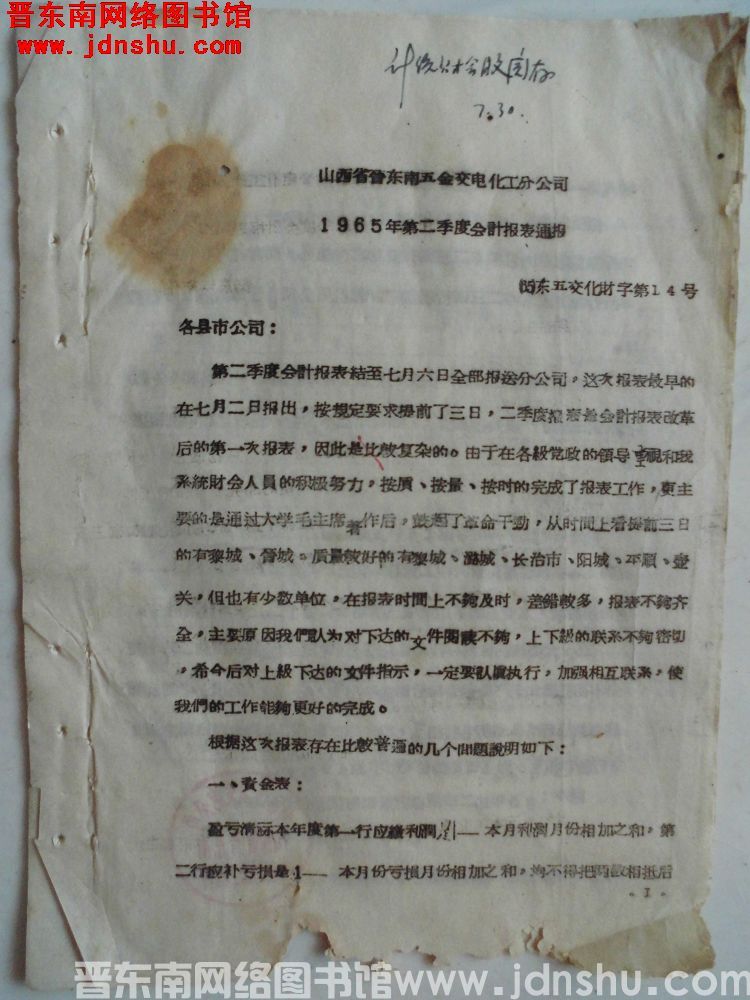 晋东南网络图书馆
www.jdnshu.com
7.30.
山西省晉东南五金交电化工分公司
1965年第二季度会計报表通报
(65)东五交化財字第14号
各县市公司：
第二季度会計报表結至七月六日全部报送分公司，这次报表最早的
在七月二日报出，按規定要求提前了三日，二季度报表是会計报表改革
后的第一次报表，因此是比較复杂的。由于在各級党政的領导重視和我
系統財会人員的积极努力，按質、按量、按时的完成了报表工作，更主
要的是通过大学毛主席著作后，鼓起了革命干勁，从时間上看提前三日
的有黎城、晉城。质量較好的有黎城、潞城、长治市、阳城、平順、壶
关，但也有少数单位，在报表时間上不夠及时，差錯較多，报表不夠齐
全，主要原因我們認为对下达的文件閱讀不夠，上下級的联系不夠密切
，希今后对上級下达的文件指示，一定要認真执行，加强相互联系，使
我們的工作能夠更好的完成。
根据这次报表存在比較普遍的几个問題說明如下：
一、資金表：
盈亏清标本年度第一行应繳利潤 1— 本月利潤月份相加之和，第
二行应补亏損是1— 本月份亏損月份相加之和，均不得把两数相抵后
·1·
晋东南网络图书馆www.jdnshu.com